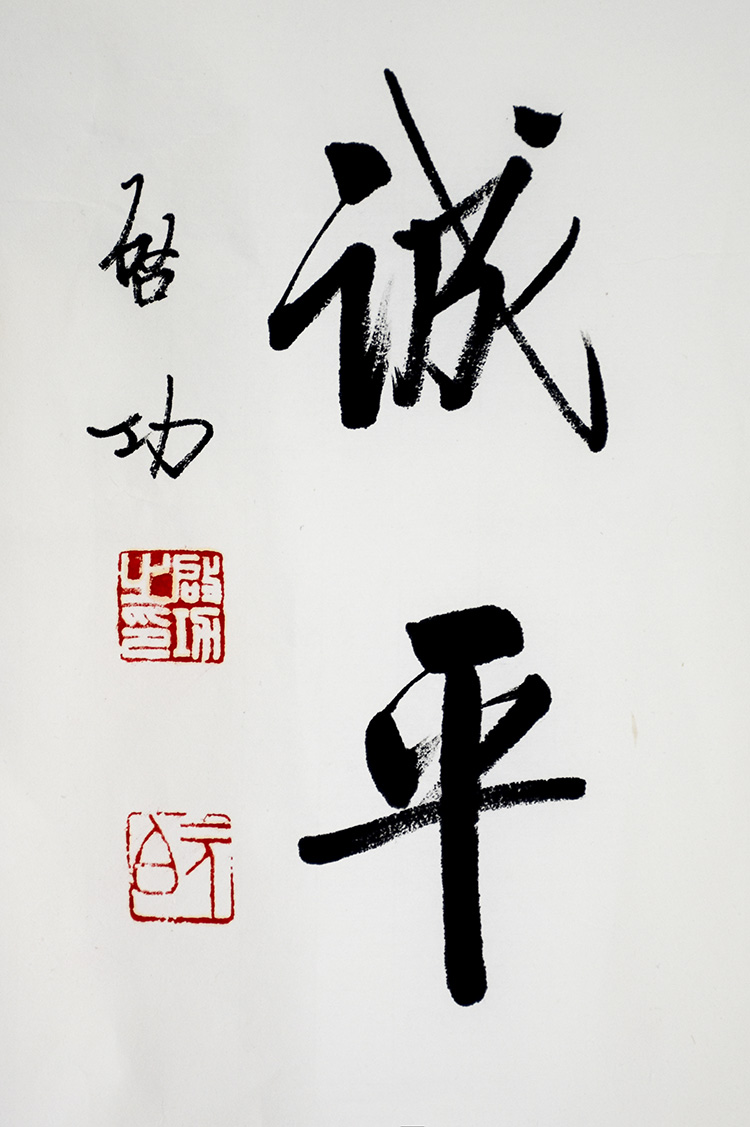 诚平
启功
啟功之印
元白